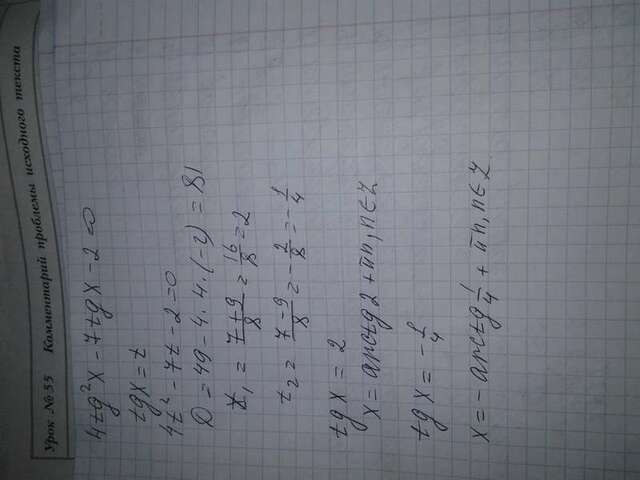 Урок № 55 Комментарий проблемы исходного текста
4tg²x - 7tgx - 2 = 0
tgx = t
4t² - 7t - 2 = 0
D = 49 - 4 · 4 · (-2) = 81
t₁ = (7+9)/8 = 16/8 = 2
t₂ = (7-9)/8 = -2/8 = -1/4
tgx = 2
x = arctg2 + πn, n∈Z
tgx = -1/4
x = -arctg 1/4 + πn, n∈Z